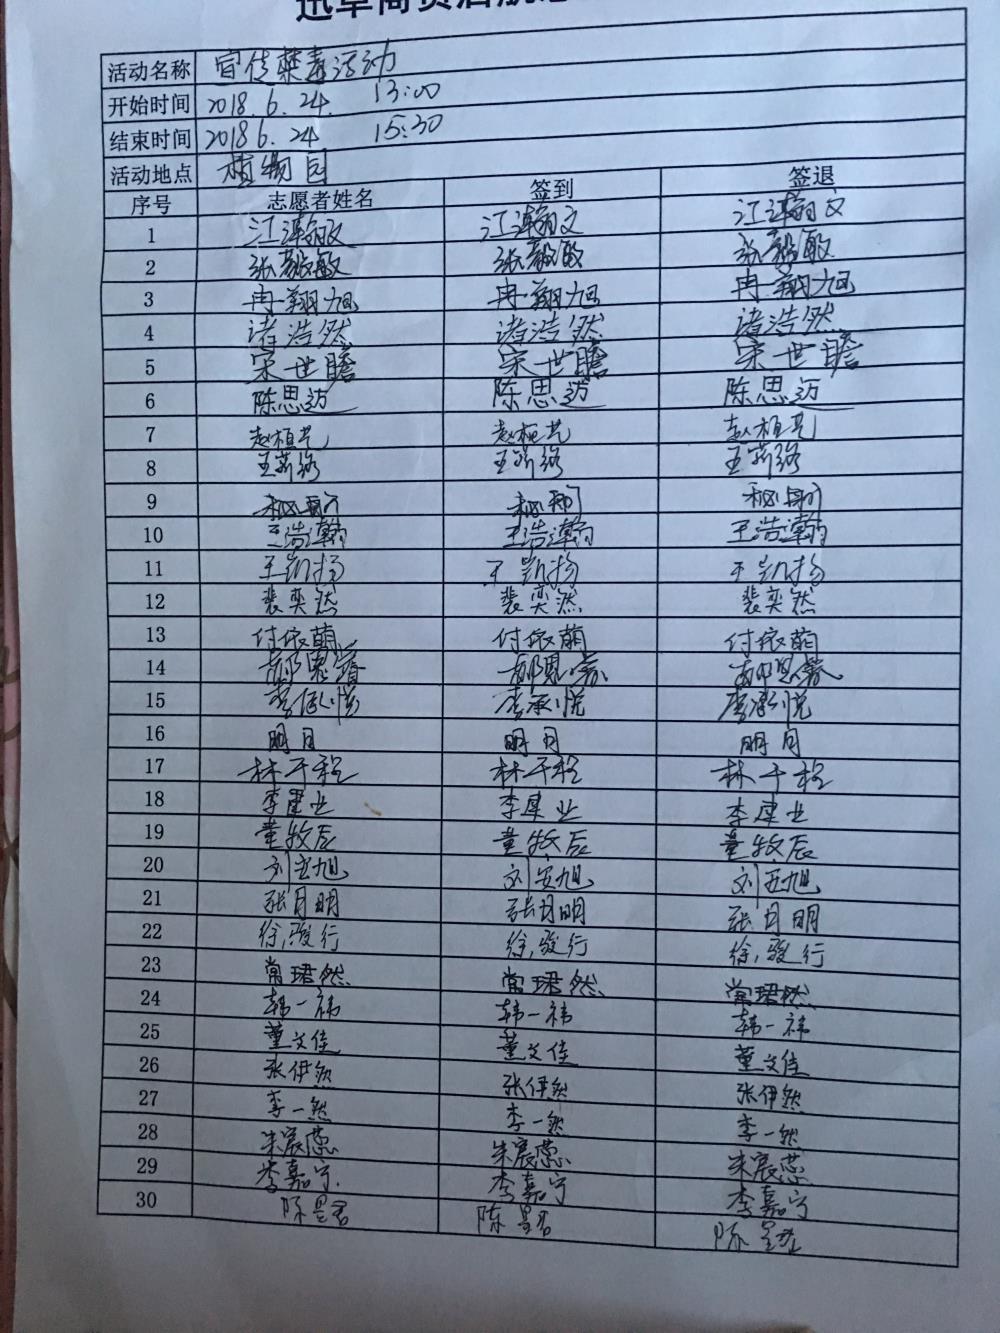 活动名称 宣传禁毒活动
开始时间 2018.6.24. 13:00
结束时间 2018 6.24 15:30
活动地点 植物园
序号 志愿者姓名 签到 签退
1
2 张毅敏 张毅敏 张毅敏
3 冉一翔旭 冉一翔旭 冉一翔旭
4 诸浩然 诸浩然 诸浩然
5 宋世瞻 宋世瞻 宋世瞻
6 陈思迈 陈思迈 陈思迈
7 赵桓艺 赵桓艺 赵桓艺
8
9
10 王浩瀚 王浩瀚 王浩瀚
11 王凯扬 王凯扬 王凯扬
12 裴奕然 裴奕然 裴奕然
13 付依萌 付依萌 付依萌
14
15 李承悦 李承悦 李承悦
16 明月 明月 明月
17 林千程 林千程 林千程
18 李建业 李建业 李建业
19 董牧辰 董牧辰 董牧辰
20 刘安旭 刘安旭 刘安旭
21 张月明 张月明 张月明
22 徐骏行 徐骏行 徐骏行
23 常珺然 常珺然 常珺然
24 韩一祎 韩一祎 韩一祎
25 董文佳 董文佳 董文佳
26 张伊然 张伊然 张伊然
27 李一然 李一然 李一然
28 朱宸蕊 朱宸蕊 朱宸蕊
29 李嘉宁 李嘉宁 李嘉宁
30 陈昱君 陈昱君